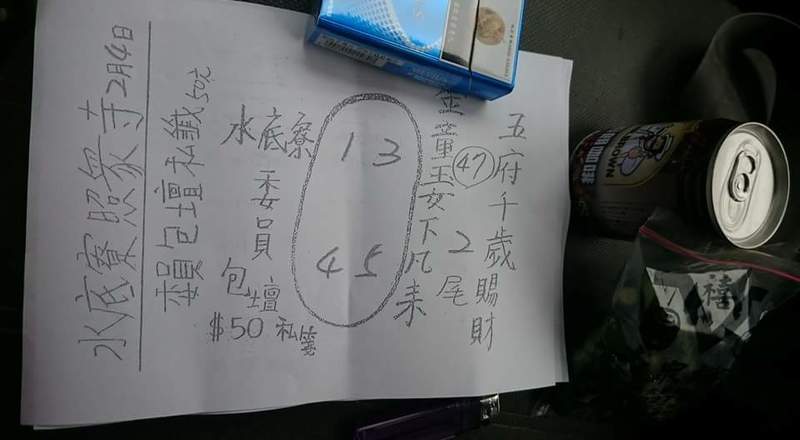 五府千歲賜財
47
2尾
金童玉女下凡來
13
45
水底寮
委員
包壇
$50 私籤
水底寮照眾寺2月4日
包壇私籤50元
BROWN
禧